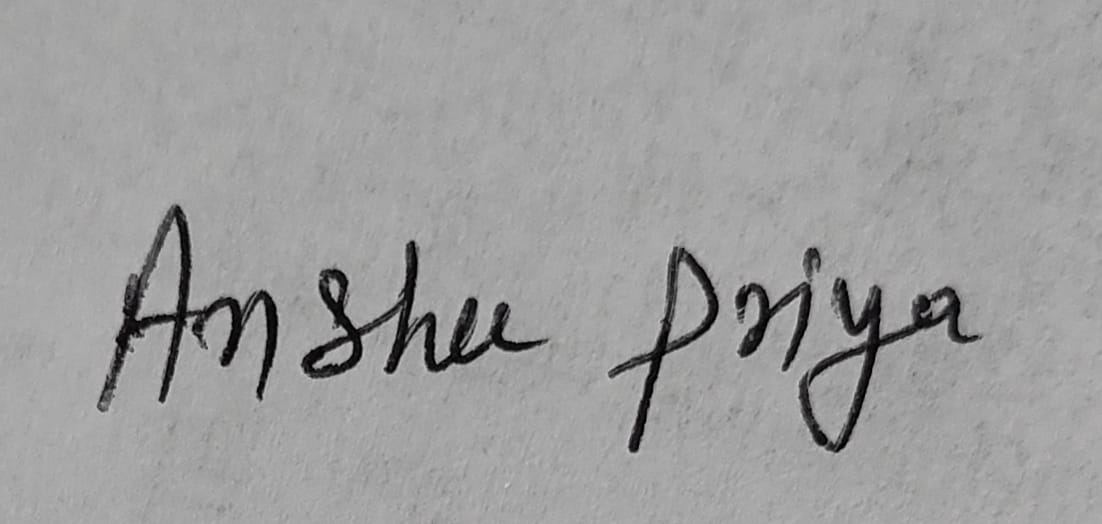 Anshu Priya